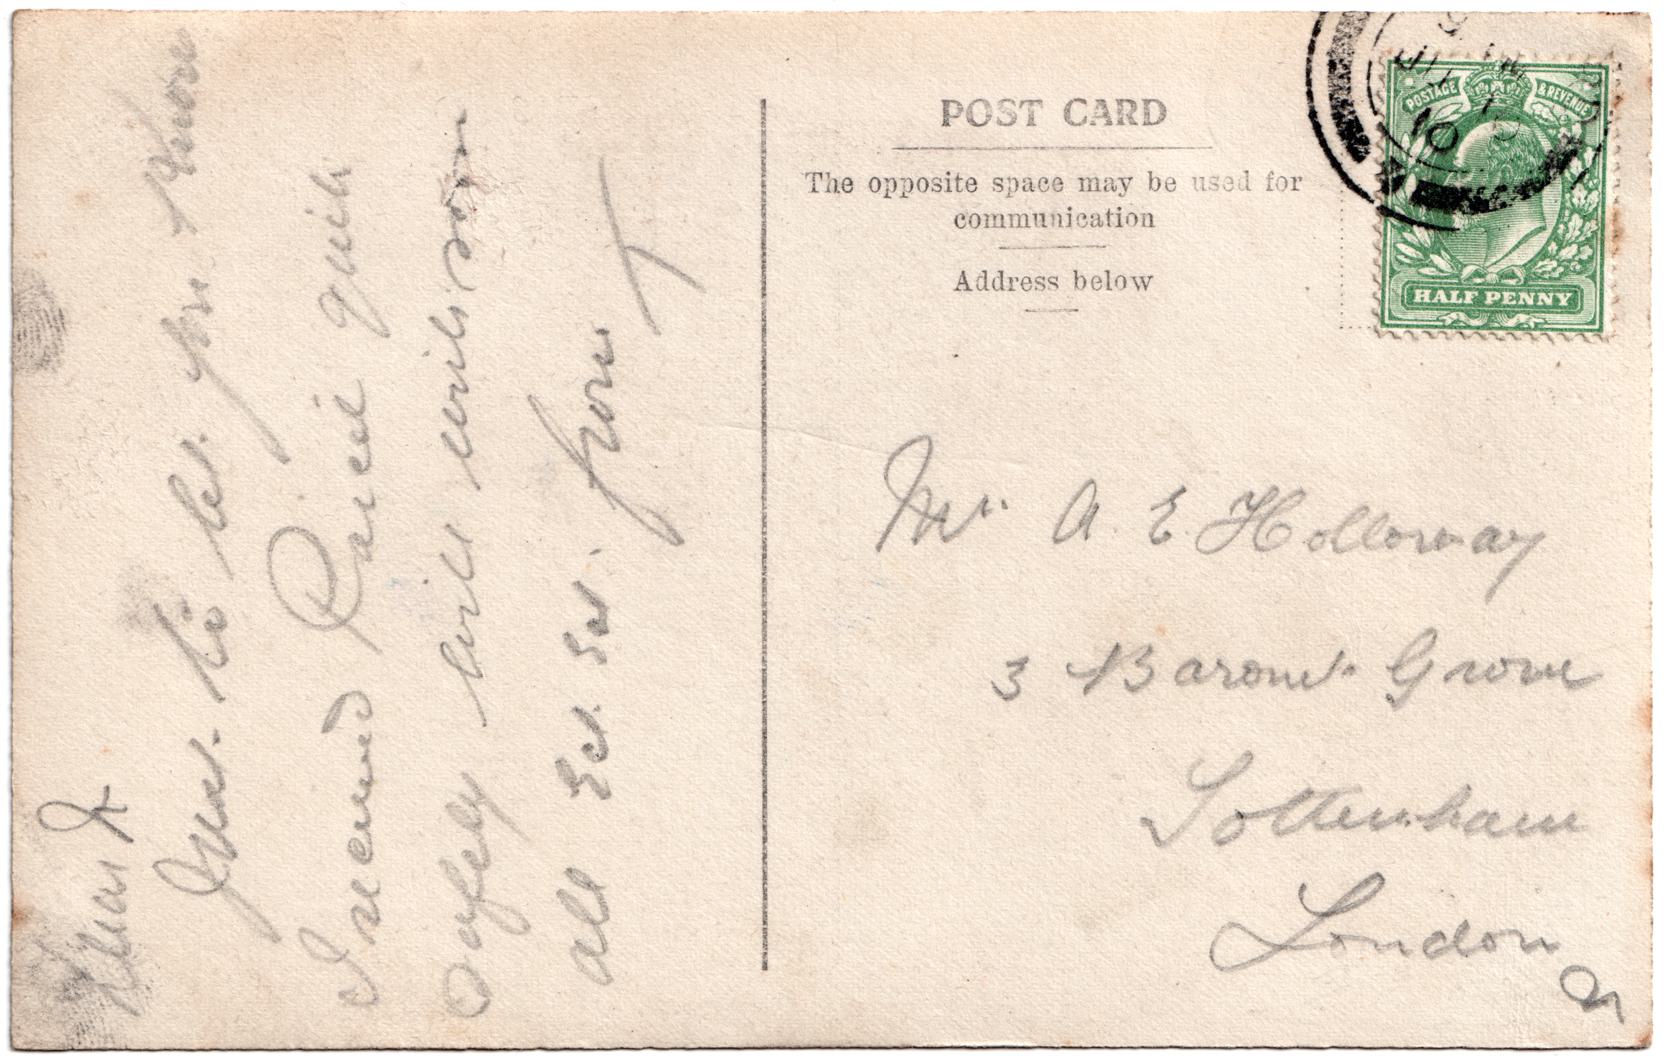 Dear F
Just to let you know
I received Parcel quite
safely will write soon
all Ect. Ect. from
T
POST CARD
The opposite space may be used for
communication
Address below
POSTAGE & REVENUE
HALF PENNY
JU
10
Mr. A. E Holloway
3 Baronet Grove
Tottenham
London